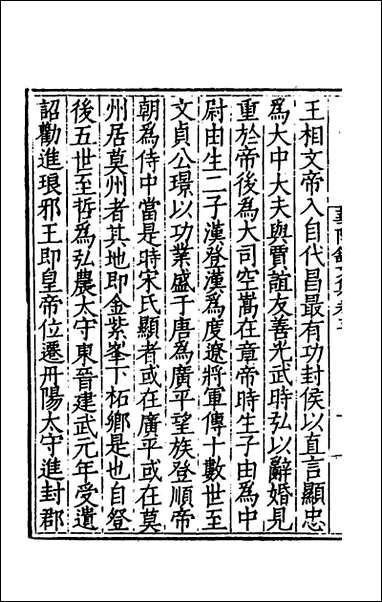 王相文帝入自代昌最有功封侯以直言顯忠
為大中大夫與賈誼友善光武時弘以辭婚見
重於帝後為大司空嵩在章帝時生子由為中
尉由生二子漢登漢為度遼將軍傳十數世至
文貞公璟以功業盛于唐為廣平望族登順帝
朝為侍中當是時宋氏顯者或在廣平或在莫
州居莫州者其地即金紫峯下柘鄉是也自登
後五世至哲為弘農太守東晉建武元年受遺
詔勸進琅邪王即皇帝位遷丹陽太守進封郡